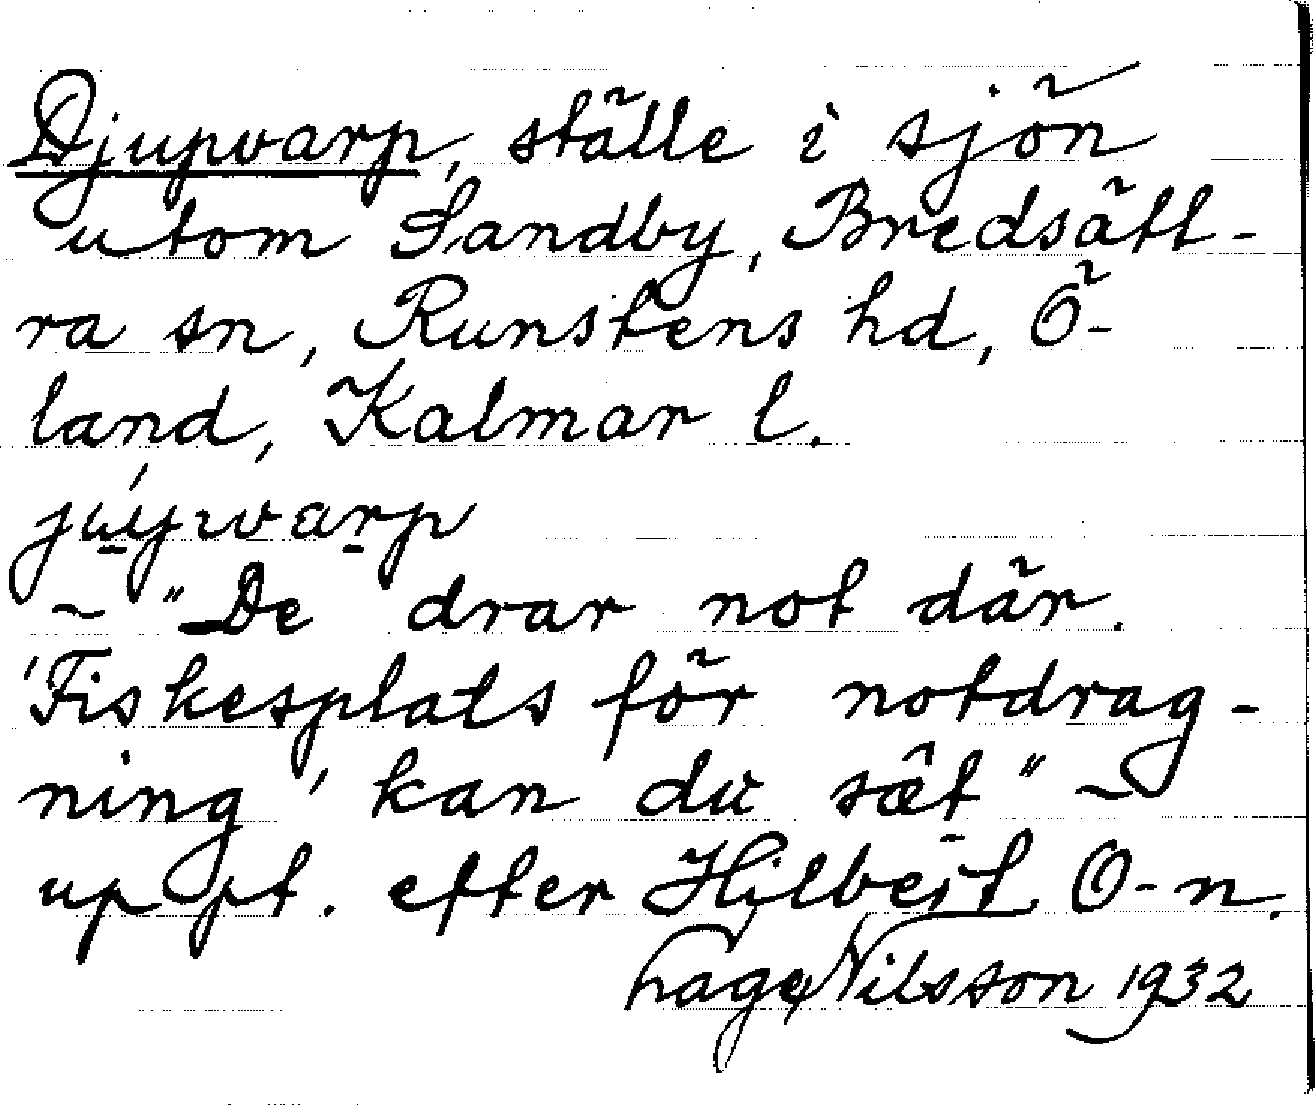 Djupvarp, ställe i sjön
utom Sandby, Bredsätt-
ra sn, Runstens hd, Ö-
land, Kalmar l.
~ "De drar not där.
'Fiskesplats för notdrag-
ning' kan du sæt" ~
uppt. efter Hilbert O-n.
Hage Nilsson 1932